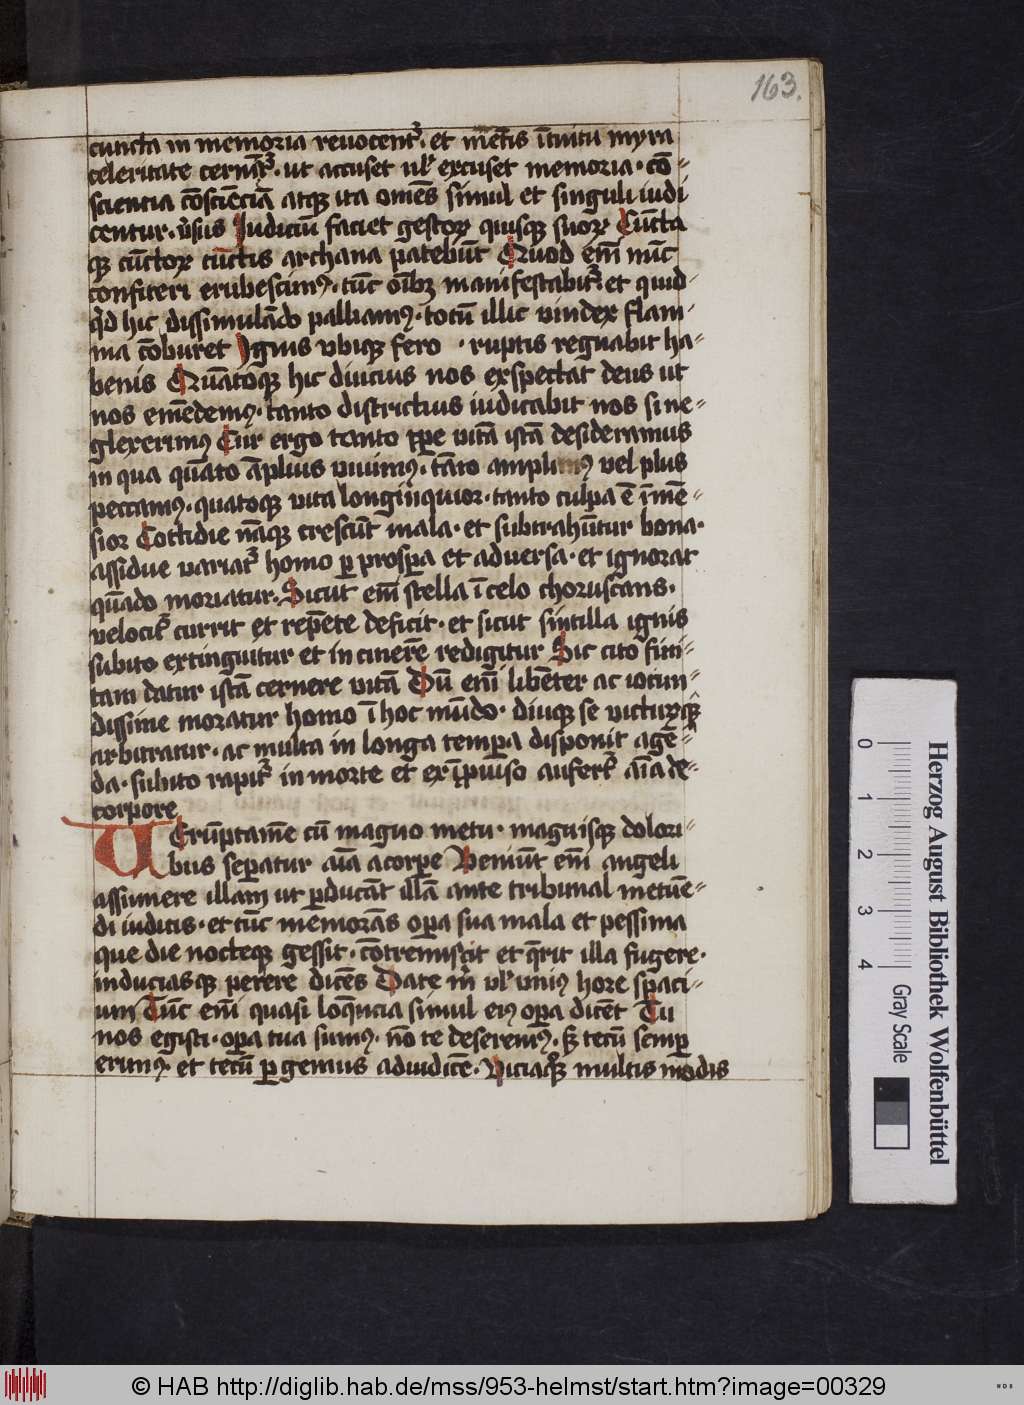 163.
cuncta in memoria reuocent᷒. et me̅tis i̅tuitu myra
celeritate cerni̅t᷒. ut accuset uł excuset memoria. co̅=
scientia co̅scie̅cia̅ atqꝫ ita ome̅s simul et singuli iudi
centur. v̅sus Iudiciu̅ faciet gestoꝝ quisqꝫ suoꝝ Cu̅cta
qꝫ cu̅ctoꝝ cu̅ctis archana patebu̅t Quod em̅ nu̅c
confiteri erubescimꝰ. tu̅c oi̅bꝫ manifestabit᷒. et quid-
q̅d hic dissimula̅do palliamꝰ. totu̅ illic vindex flam-
ma co̅buret Ignis vbiqꝫ fero . ruptis regnabit ha-
benis Qua̅toqꝫ hic diucius nos exspectat deus ut
nos eme̅demꝰ. tanto districtius iudicabit nos si ne=
glexerimꝰ Cur ergo tanto ꝑpe vita̅ ista̅ desideramus
in qua qua̅to a̅plius viuimꝰ. ta̅to amplimꝰ vel plus
peccamꝰ. quatoqꝫ vita longinquior. tanto culpa e̅ i̅me̅=
sior Cottidie na̅qꝫ crescu̅t mala. et subtrahu̅tur bona.
assidue variat᷒ homo ꝑ prospa̅ et aduersa. et ignorat
qua̅do moriatur. Sicut em̅ stella i̅ celo choruscans.
velocit᷒ currit et repe̅te deficit. et sicut sintilla ignis
subito extinguitur et in cinere̅ redigitur Sic cito fini=
tam datur ista̅ cernere vita̅ Du̅ em̅ libe̅ter ac iocun=
dissime moratur homo i̅ hoc mu̅do. diuqꝫ se victuꝝqꝫ
arbitratur. ac multa in longa tempa̅ disponit age̅=
da. subito rapit᷒ in morte et ex i̅prouiso aufert᷒ ai̅a de=
corpore
VEru̅ptame̅ cu̅ magno metu. magnisqꝫ dolori=
bus sepa̅tur ai̅a a corpe̅ Veniu̅t em̅ angeli
assumere illam ut ꝑduca̅t illa̅ ante tribunal metue̅=
di iudicis. et tu̅c memora̅s opa̅ sua mala et pessima
que die nocteqꝫ gessit. co̅tremiscit et q̅rit illa fugere.
induciasqꝫ petere dice̅s Date m̅ uł vniꝰ hore spaci=
um Tu̅c em̅ quasi loque̅cia simul eiꝰ opa̅ dice̅t Tu
nos egisti. opa̅ tua sumꝰ. no̅ te deseremꝰ. sꝫ tecu̅ semꝑ
erimꝰ. et tecu̅ ꝑgemus ad iudice̅. Viciaqꝫ multis modis
Herzog August Bibliothek Wolfenbüttel
0 1 2 3 4 Gray Scale
© HAB http://diglib.hab.de/mss/953-helmst/start.htm?image=00329